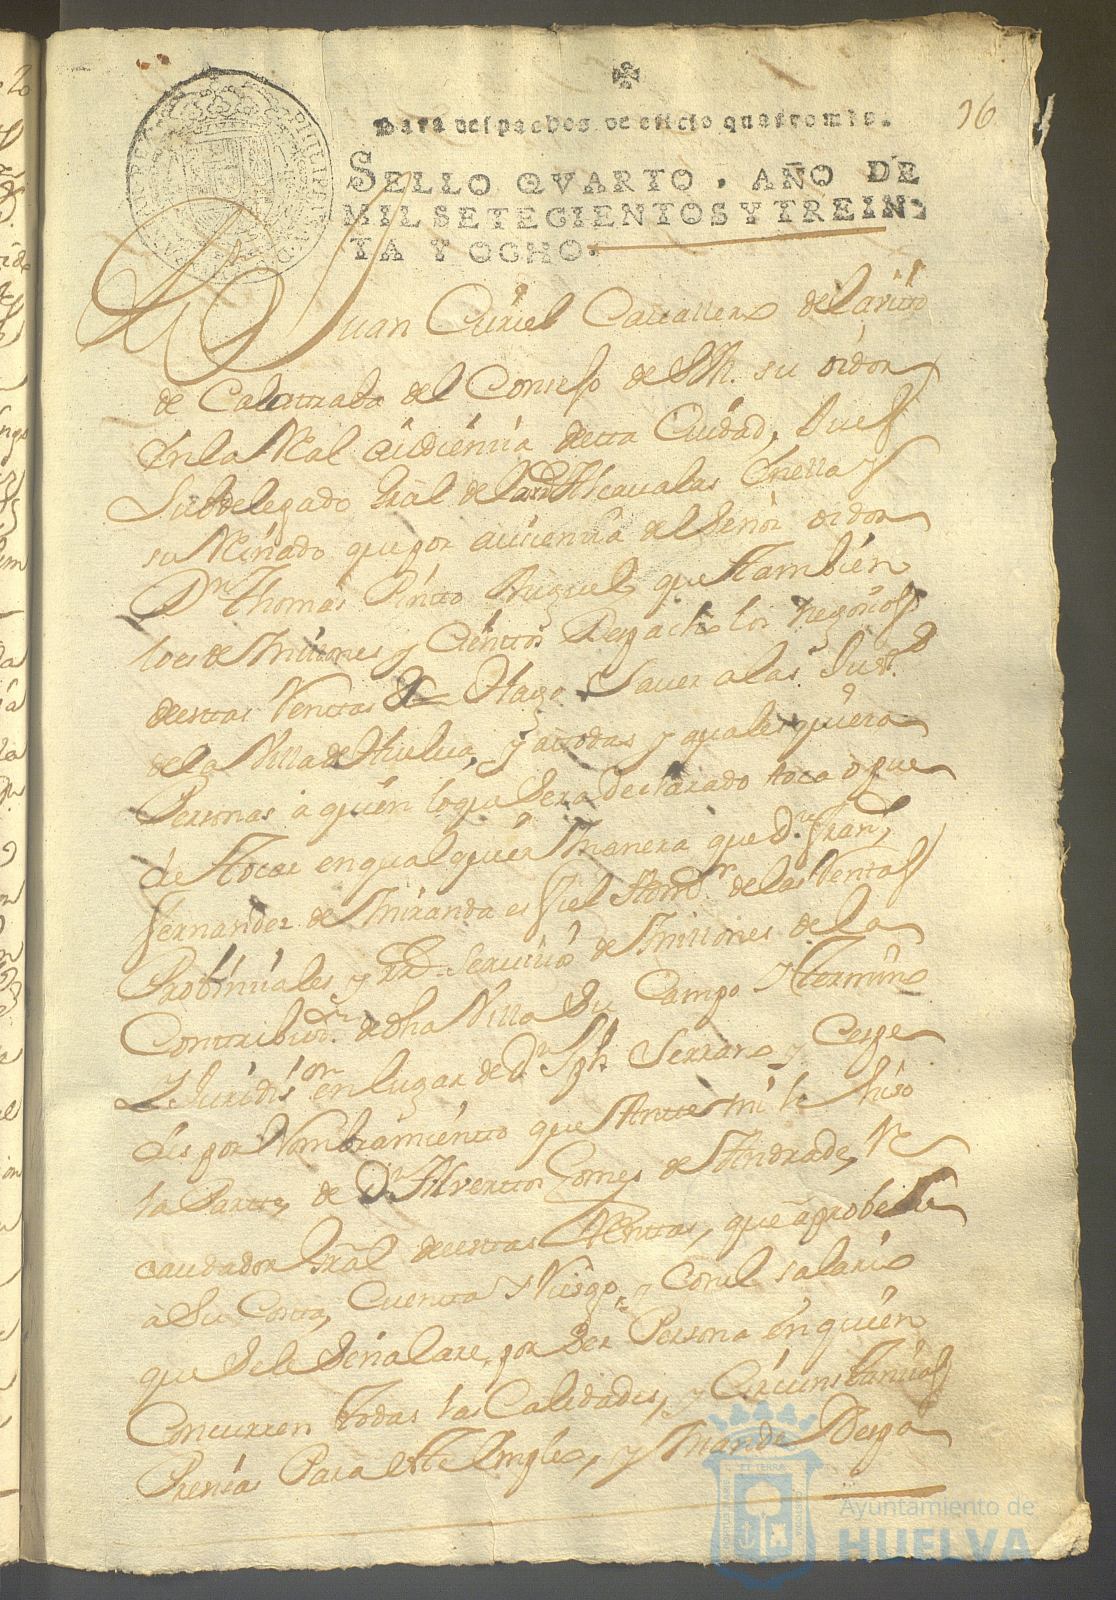 Para despachos de oficio quatro mrs.
16
SELLO QVARTO, AÑO DE
MIL SETECIENTOS Y TREIN-
TA Y OCHO.
Juan Curiel Cavallero del
de Calatrava del Consejo de S.M. su oidor
en la Real Audiencia desta Ciudad, Juez
Subdelegado Gral de Alcavalas en ella y
su Reinado que por ausencia del Señor oidor
Dn Thomas Pinto Miguel que tambien
lo es de Millones y Cientos Despacho los negocios
de estas Rentas &a Hago Saver a las
de la Villa de Huelva, y a todas y quales quiera
Personas a quien lo que sera declarado toca o pue
de tocar en qual quier Manera que Dn Fran.
Fernandez de Miranda es Fiel Admor de las Rentas
Provinciales y Rl Servicio de Millones de la
Contribuon de dha Villa Su Campo Y termino
Y Jurisdion en lugar de Dn Jph. Serrano y Cespe
des por Nombramiento que Ante mi le hiso
la Parte de Dn Alverto Gomes de Andrade, Re
caudador Gral de estas Rentas, que aprobe
a Su Costa, Cuenta Y Riesgo, y Con el salario
que Se le Señalare, por Ser Persona en quien
Concurren todas las Calidades, y Circunstancias
Presias Para Este Empleo, y Mande Despa
Ayuntamiento de
HUELVA